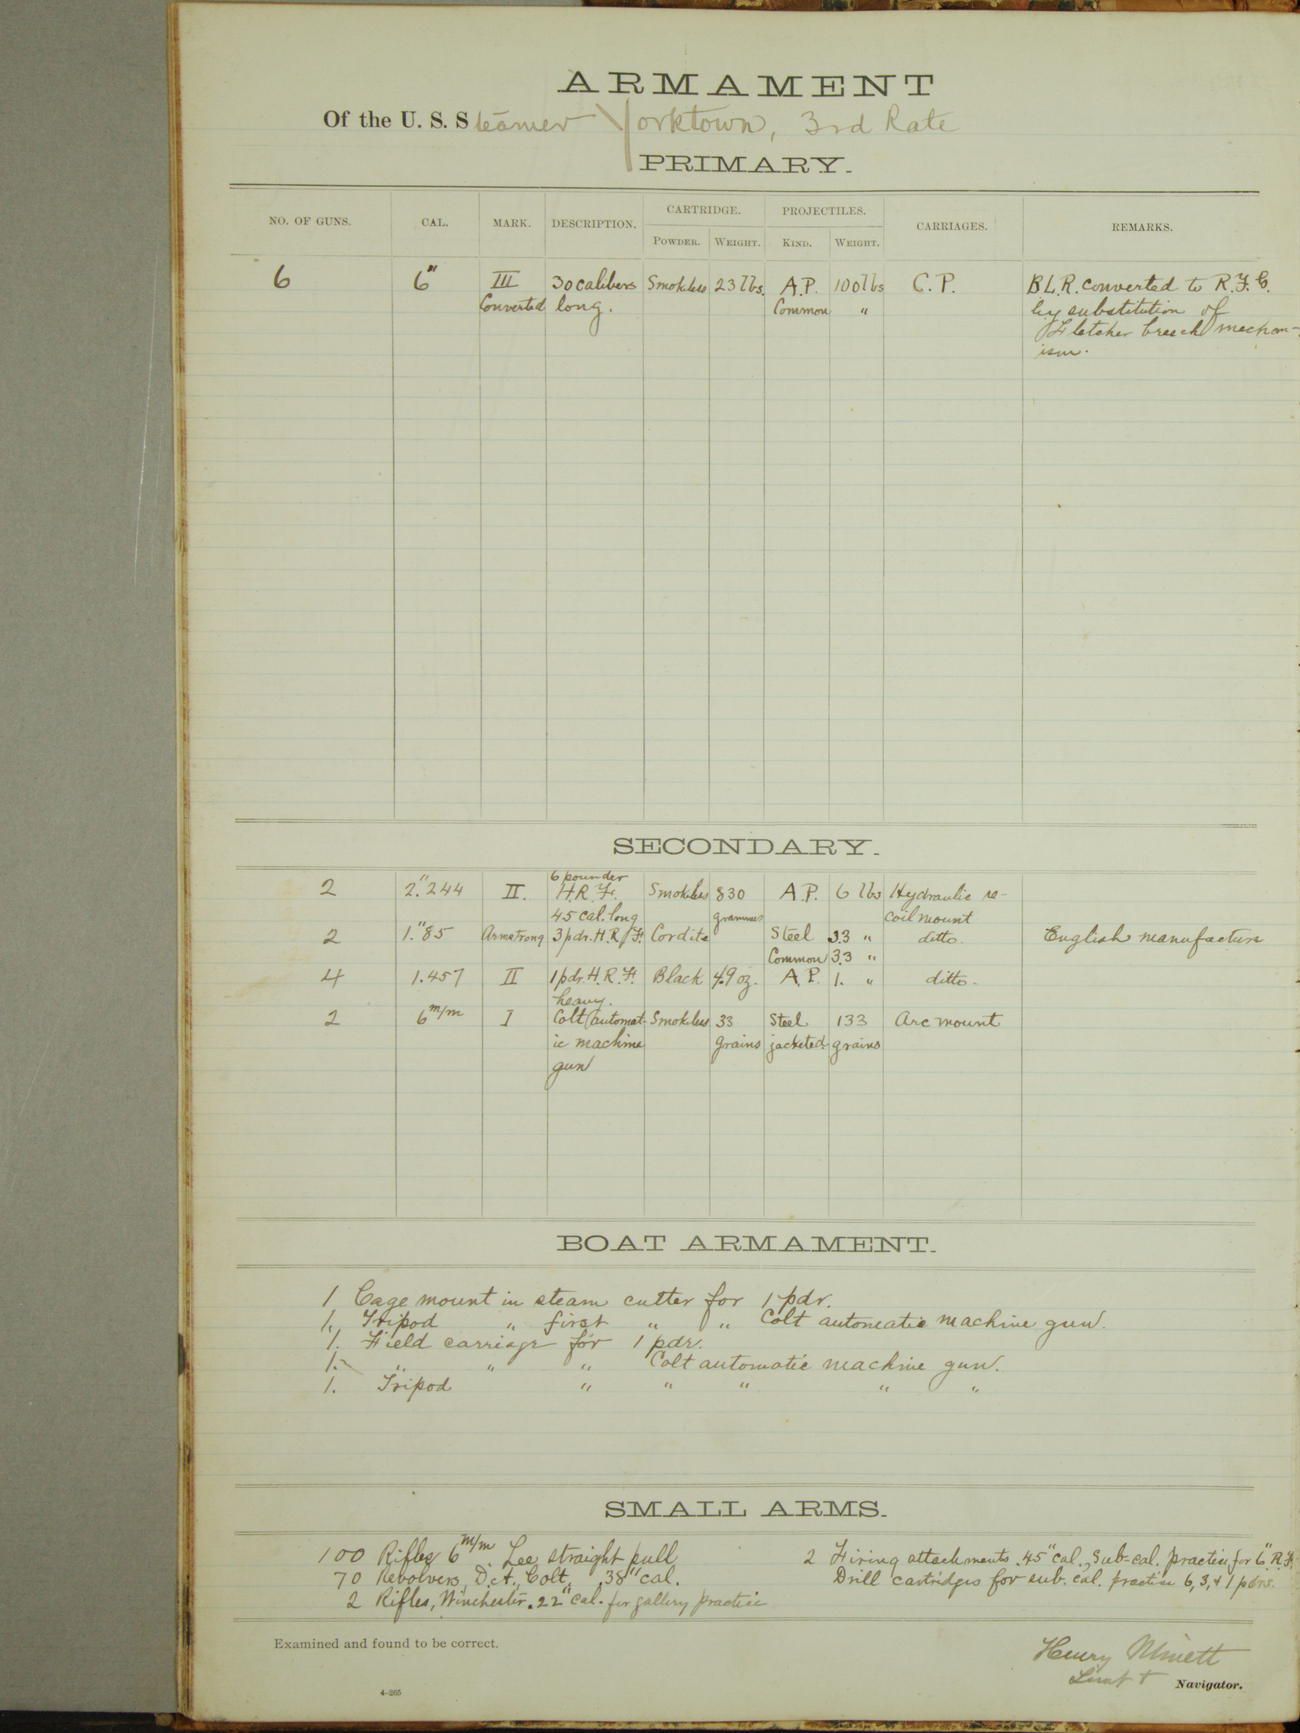 ARMAMENT
Of the U. S. Steamer Yorktown, 3rd Rate
PRIMARY.
NO. OF GUNS. CAL. MARK. DESCRIPTION. CARTRIDGE. PROJECTILES. CARRIAGES. REMARKS.
POWDER. WEIGHT. KIND. WEIGHT.
6 6" III 30 calibers Smokeless 23 lbs. A.P. 100 lbs C.P. B.L.R. converted to R.F.G.
Converted long. Common " by substitution of
Fletcher breech mechan-
ism.
SECONDARY.
6 pounder
2 2."244 II. H.R.F. Smokeless 830 A.P. 6 lbs Hydraulic re-
45 cal. long grammes coil mount
2 1."85 Armstrong 3 pdr. H.R.F. Cordite Steel 3.3 " ditto. English manufacture
Common 3.3 "
4 1.457 II 1 pdr. H.R.F. Black 4.9 oz. A.P. 1. " ditto.
heavy.
2 6 m/m I Colt automat- Smokeless 33 Steel 133 Arc mount
ic machine grains jacketed grains
gun
BOAT ARMAMENT.
1 Cage mount in steam cutter for 1 pdr.
1. Tripod " first " " Colt automatic machine gun.
1. Field carriage for 1 pdr.
1. " " " Colt automatic machine gun.
1. Tripod " " " " "
SMALL ARMS.
100 Rifles 6 m/m Lee straight pull 2 Firing attachments .45" cal., Sub-cal. practice for 6" R.F.
70 Revolvers, D.A., Colt, .38" cal. Drill cartridges for sub. cal. practice 6, 3, & 1 pdrs.
2 Rifles, Winchester .22" cal. for gallery practice
Examined and found to be correct.
Henry Minett
Lieut Navigator.
4-265